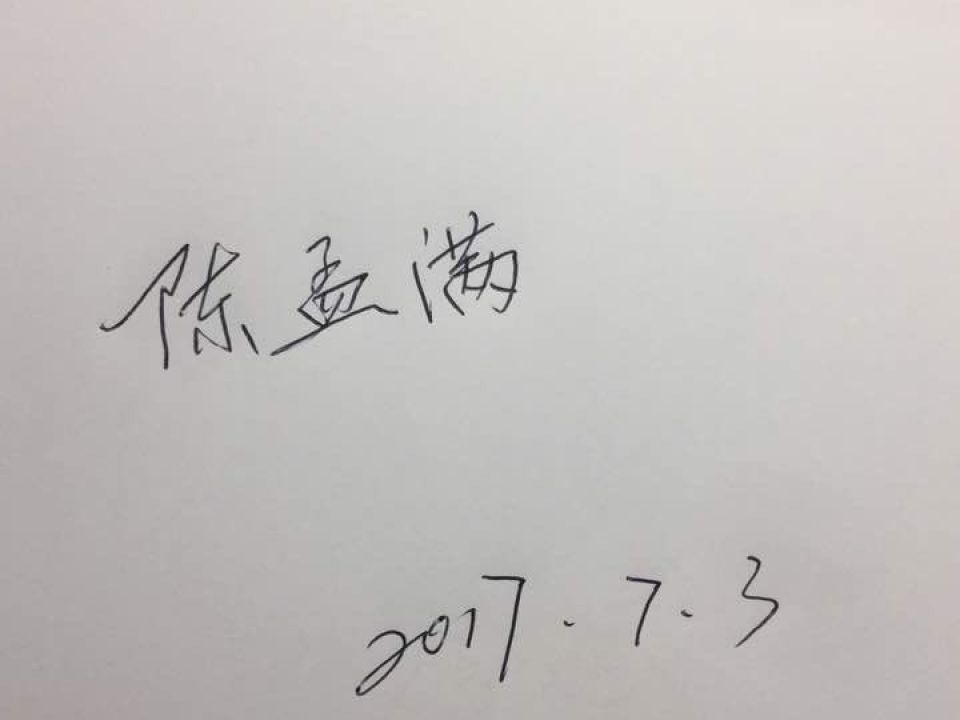 陈孟满
2017.7.3